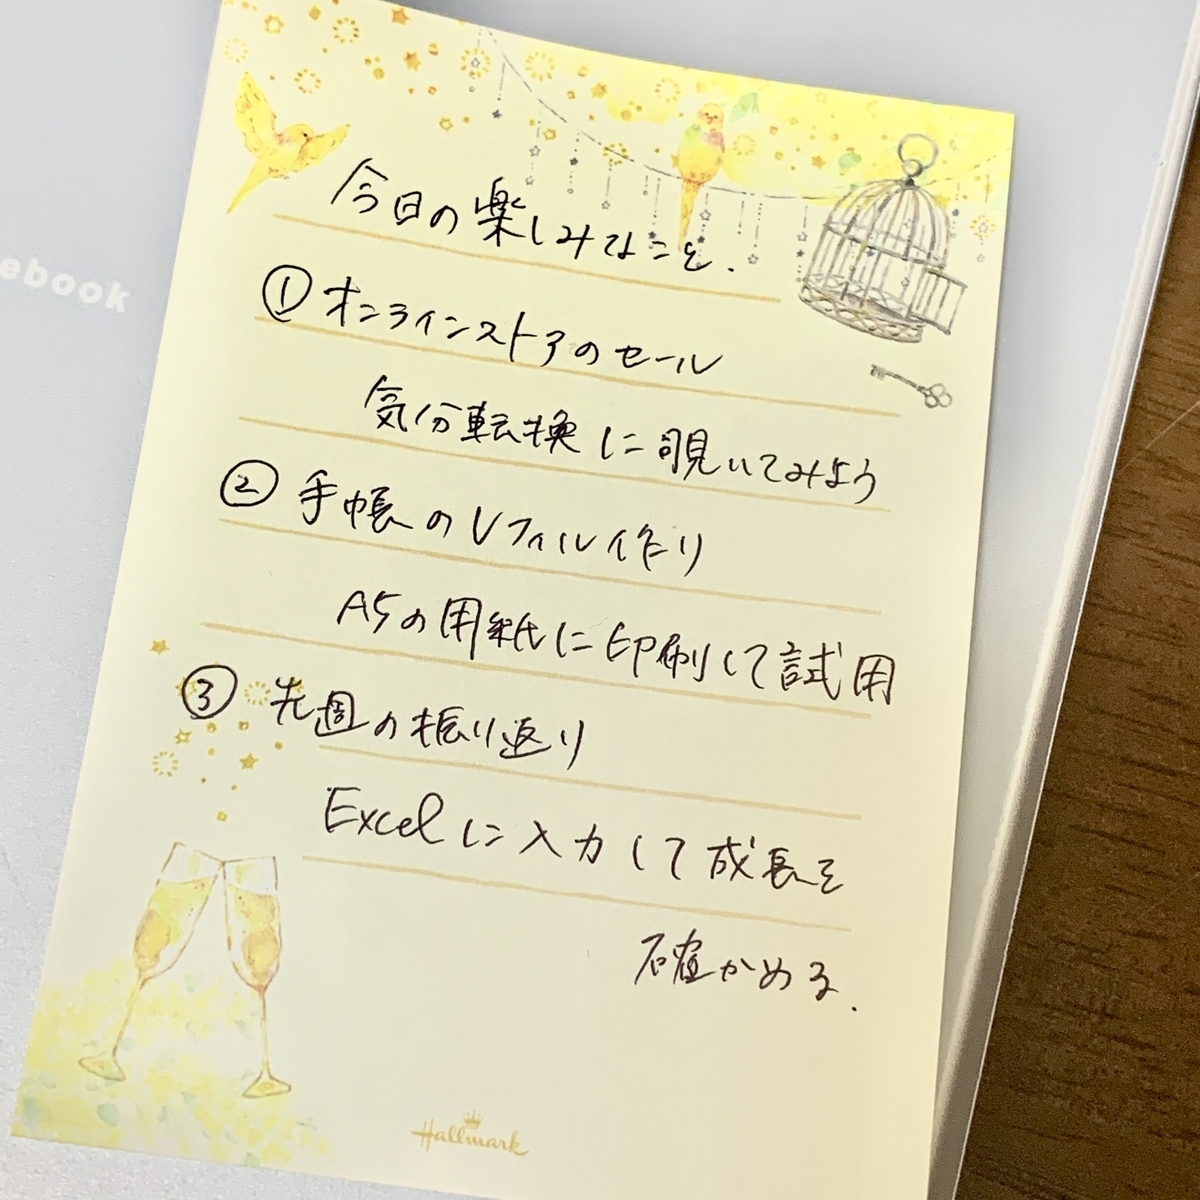 ebook
今日の楽しみなこと.
① オンラインストアのセール
気分転換に覗いてみよう
② 手帳のリフィル作り
A5の用紙に印刷して試用
③ 先週の振り返り
Excelに入力して成長を
確かめる.
Hallmark